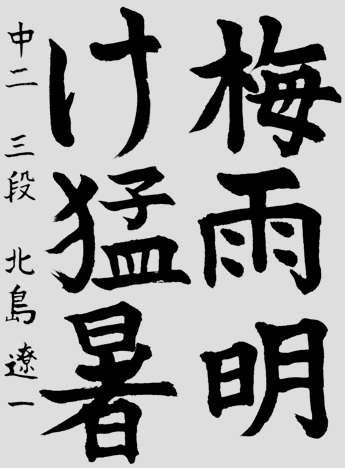 梅雨明
け猛暑
中二 三段 北島遼一